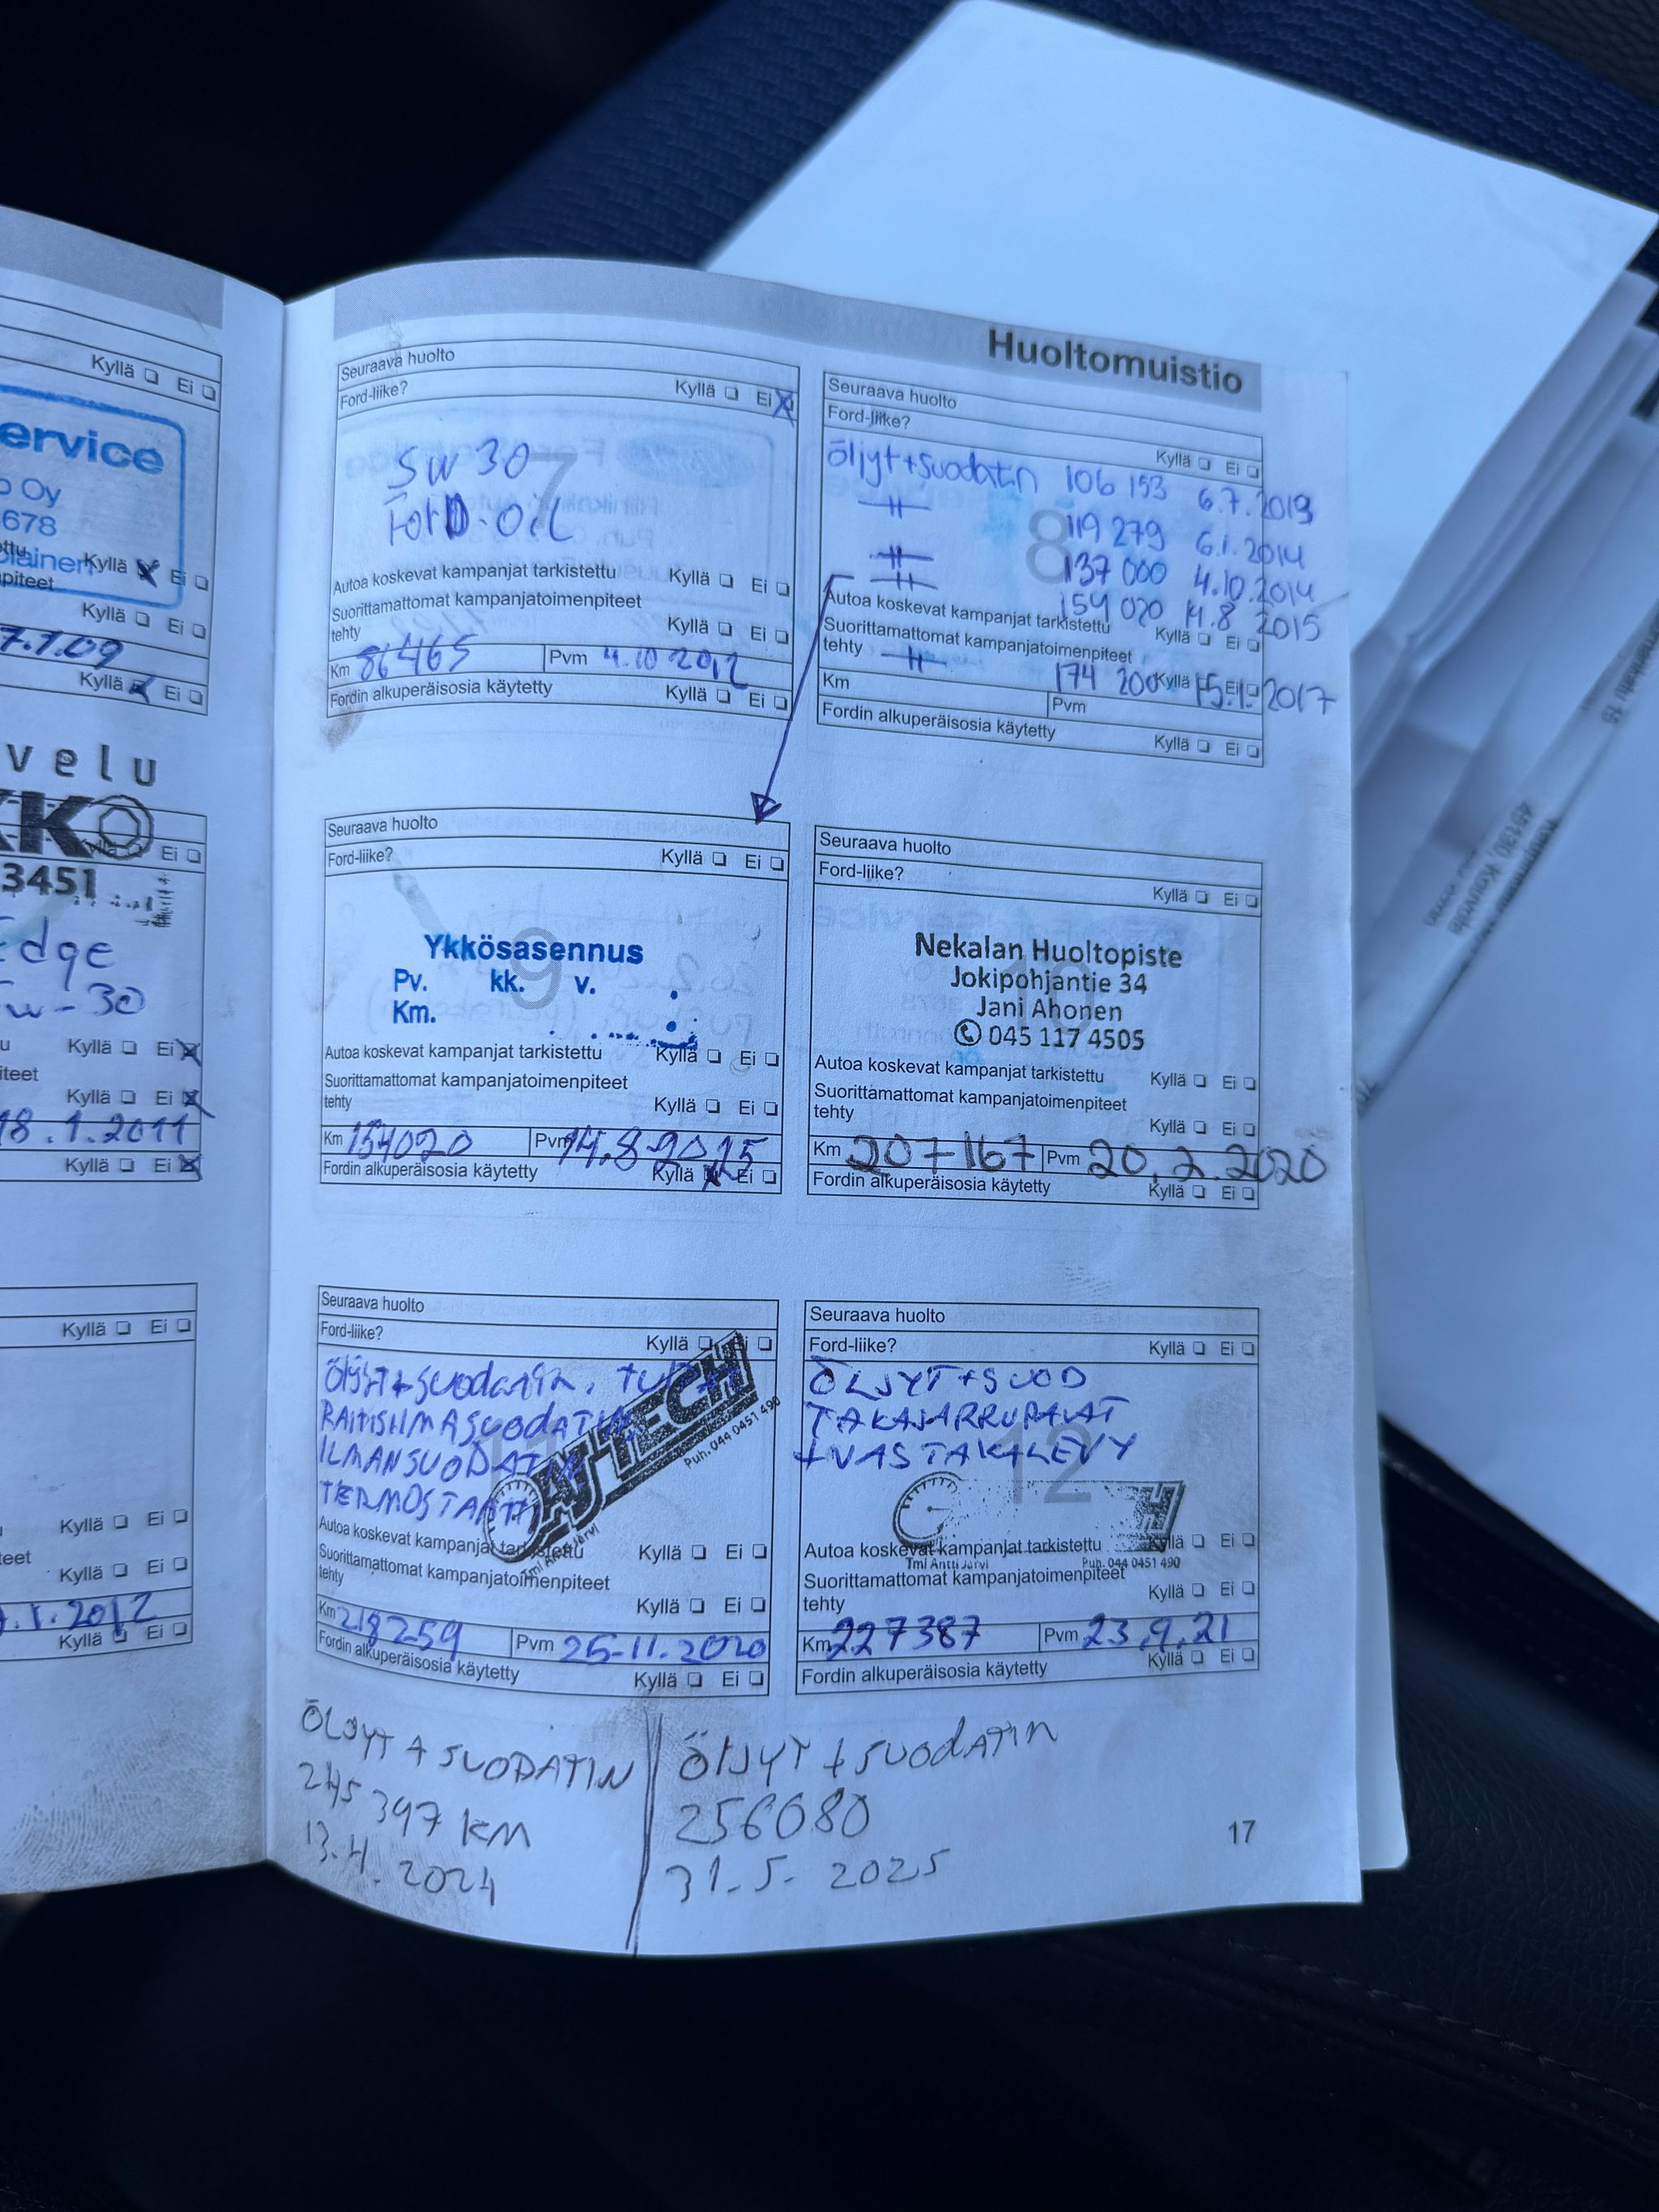 Kyllä ❏ Ei ❏
ervice
Oy
678
Kyllä ☒ Ei ❏
piteet
Kyllä ❏ Ei ❏
7.1.09
Kyllä ☒ Ei ❏
velu
KKO
Ei ❏
3451
Edge
w-30
Kyllä ❏ Ei ☒
iteet
Kyllä ❏ Ei ☒
18.1.2011
Kyllä ❏ Ei ☒
Kyllä ❏ Ei ❏
Kyllä ❏ Ei ❏
teet
Kyllä ❏ Ei ❏
.1.2012
Kyllä ❏ Ei ❏
Huoltomuistio
Seuraava huolto
Ford-liike? Kyllä ❏ Ei ☒
7
5W30
Ford. Oil
Autoa koskevat kampanjat tarkistettu Kyllä ❏ Ei ❏
Suorittamattomat kampanjatoimenpiteet
tehty Kyllä ❏ Ei ❏
Km 86465 Pvm 4.10 2012
Fordin alkuperäisosia käytetty Kyllä ❏ Ei ❏
Seuraava huolto
Ford-liike? Kyllä ❏ Ei ❏
8
Öljyt+suodatin 106 153 6.7.2013
-ıı- 119 279 6.1.2014
-ıı- 137 000 4.10.2014
-ıı- 154 020 14.8 2015
Autoa koskevat kampanjat tarkistettu Kyllä ❏ Ei ❏
Suorittamattomat kampanjatoimenpiteet
tehty -ıı- 174 200 Kyllä ❏ Ei ❏ 15.1.2017
Km Pvm
Fordin alkuperäisosia käytetty Kyllä ❏ Ei ❏
Seuraava huolto
Ford-liike? Kyllä ❏ Ei ❏
9
Ykkösasennus
Pv. kk. v.
Km.
Autoa koskevat kampanjat tarkistettu Kyllä ❏ Ei ❏
Suorittamattomat kampanjatoimenpiteet
tehty Kyllä ❏ Ei ❏
Km 154020 Pvm 14.8.2015
Fordin alkuperäisosia käytetty Kyllä ☒ Ei ❏
Seuraava huolto
Ford-liike? Kyllä ❏ Ei ❏
10
Nekalan Huoltopiste
Jokipohjantie 34
Jani Ahonen
✆ 045 117 4505
Autoa koskevat kampanjat tarkistettu Kyllä ❏ Ei ❏
Suorittamattomat kampanjatoimenpiteet
tehty Kyllä ❏ Ei ❏
Km 207167 Pvm 20.2.2020
Fordin alkuperäisosia käytetty Kyllä ❏ Ei ❏
Seuraava huolto
Ford-liike? Kyllä ❏ Ei ❏
Öljyt+suodatin,
RAITISILMASUODATIN
ILMANSUODATIN
TERMOSTAATTI
AJ TECH
Tmi Antti Järvi Puh. 044 0451 490
Autoa koskevat kampanjat tarkistettu Kyllä ❏ Ei ❏
Suorittamattomat kampanjatoimenpiteet
tehty Kyllä ❏ Ei ❏
Km 218259 Pvm 25-11.2020
Fordin alkuperäisosia käytetty Kyllä ❏ Ei ❏
Seuraava huolto
Ford-liike? Kyllä ❏ Ei ❏
12
ÖLJYT+SUOD
TAKAJARRUPALAT
+VASTAKALEVY
Autoa koskevat kampanjat tarkistettu Kyllä ❏ Ei ❏
Tmi Antti Järvi Puh. 044 0451 490
Suorittamattomat kampanjatoimenpiteet
tehty Kyllä ❏ Ei ❏
Km 227387 Pvm 23.9.21
Fordin alkuperäisosia käytetty Kyllä ❏ Ei ❏
ÖLJYT + SUODATIN
245 397 KM
13.4.2024
ÖLJYT + SUODATIN
256080
31.5. 2025
17